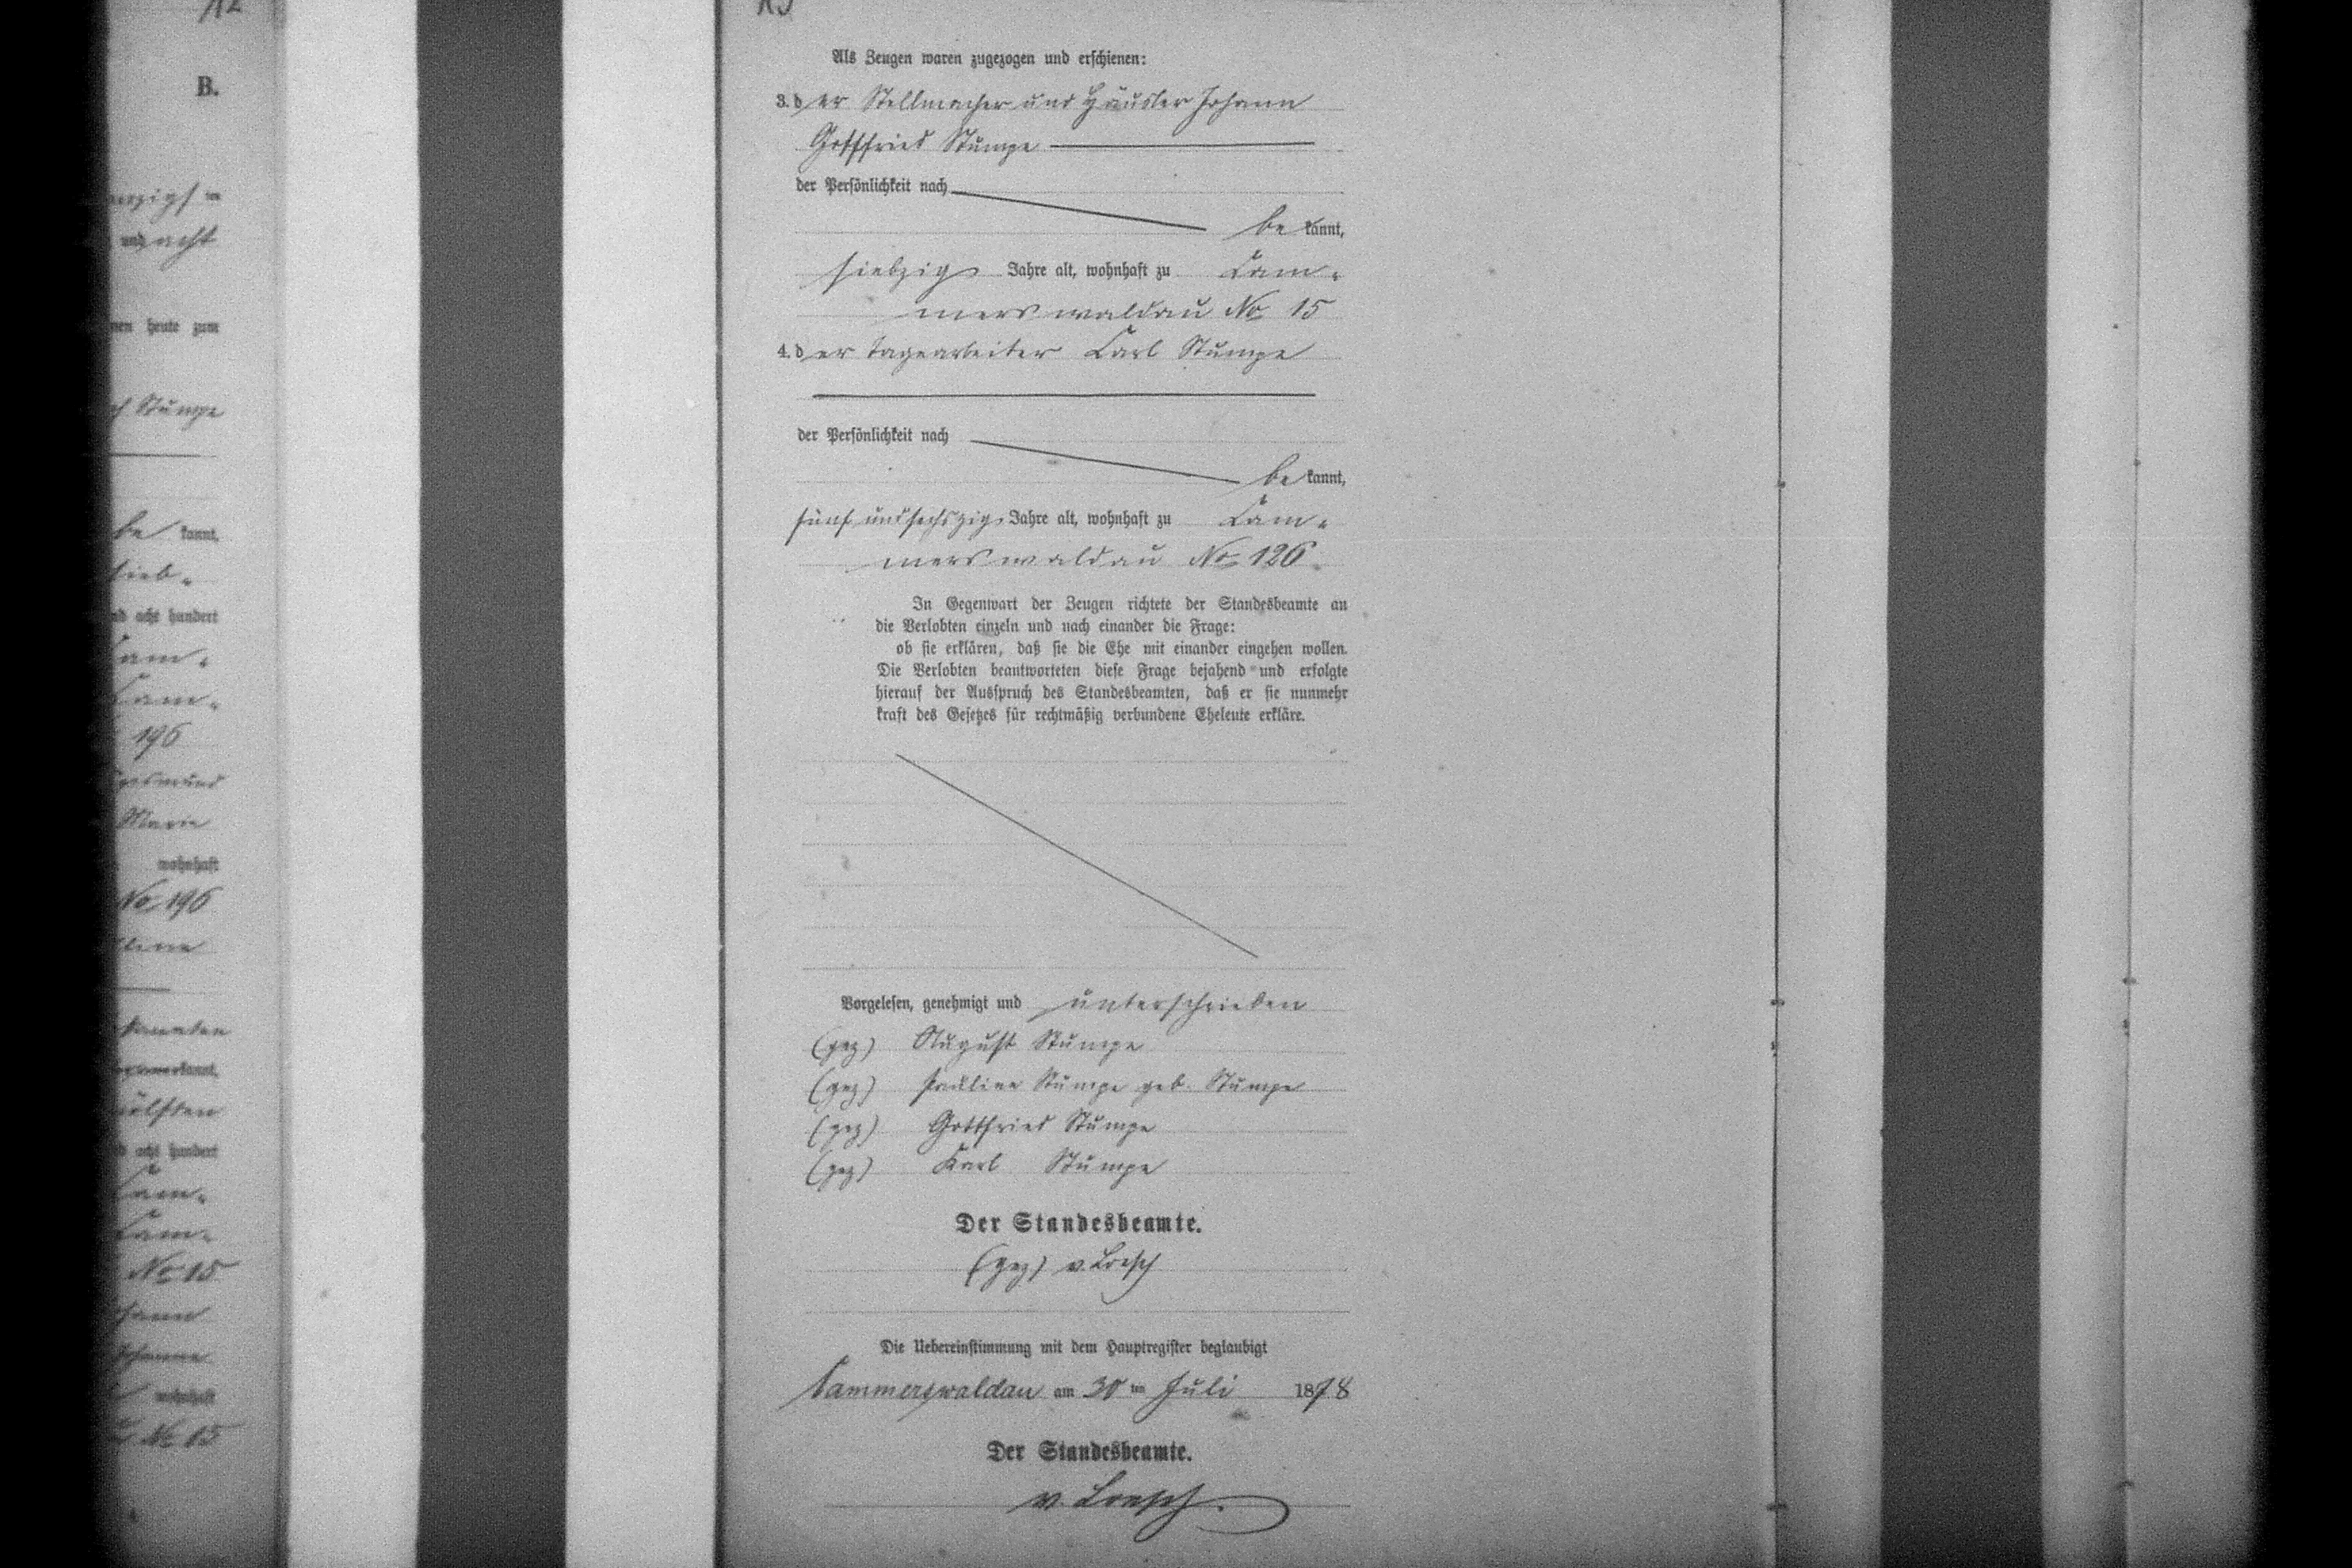 B.
und acht
heute zum
Stumpe
be kannt,
sieb-
acht hundert
Cam-
Cam-
196
Marie
wohnhaft
No 196
acht hundert
Cam-
Cam-
No 15
wohnhaft
No 15
Als Zeugen waren zugezogen und erschienen:
3. der Stellmacher und Häusler Johann
Gottfried Stumpe
der Persönlichkeit nach
be kannt,
siebzig Jahre alt, wohnhaft zu Cam-
merswaldau No 15
4. der Tagearbeiter Carl Stumpe
der Persönlichkeit nach
be kannt,
fünf und sechszig Jahre alt, wohnhaft zu Cam-
merswaldau No 126.
In Gegenwart der Zeugen richtete der Standesbeamte an
die Verlobten einzeln und nach einander die Frage:
ob sie erklären, daß sie die Ehe mit einander eingehen wollen.
Die Verlobten beantworteten diese Frage bejahend und erfolgte
hierauf der Ausspruch des Standesbeamten, daß er sie nunmehr
kraft des Gesetzes für rechtmäßig verbundene Eheleute erkläre.
Vorgelesen, genehmigt und unterschrieben
(gez) August Stumpe
(gez) Pauline Stumpe geb. Stumpe
(gez) Gottfried Stumpe
(gez) Karl Stumpe
Der Standesbeamte.
(gez) v. Loesch
Die Uebereinstimmung mit dem Hauptregister beglaubigt
Cammerswaldau am 30 ten Juli 1878
Der Standesbeamte.
v. Loesch.